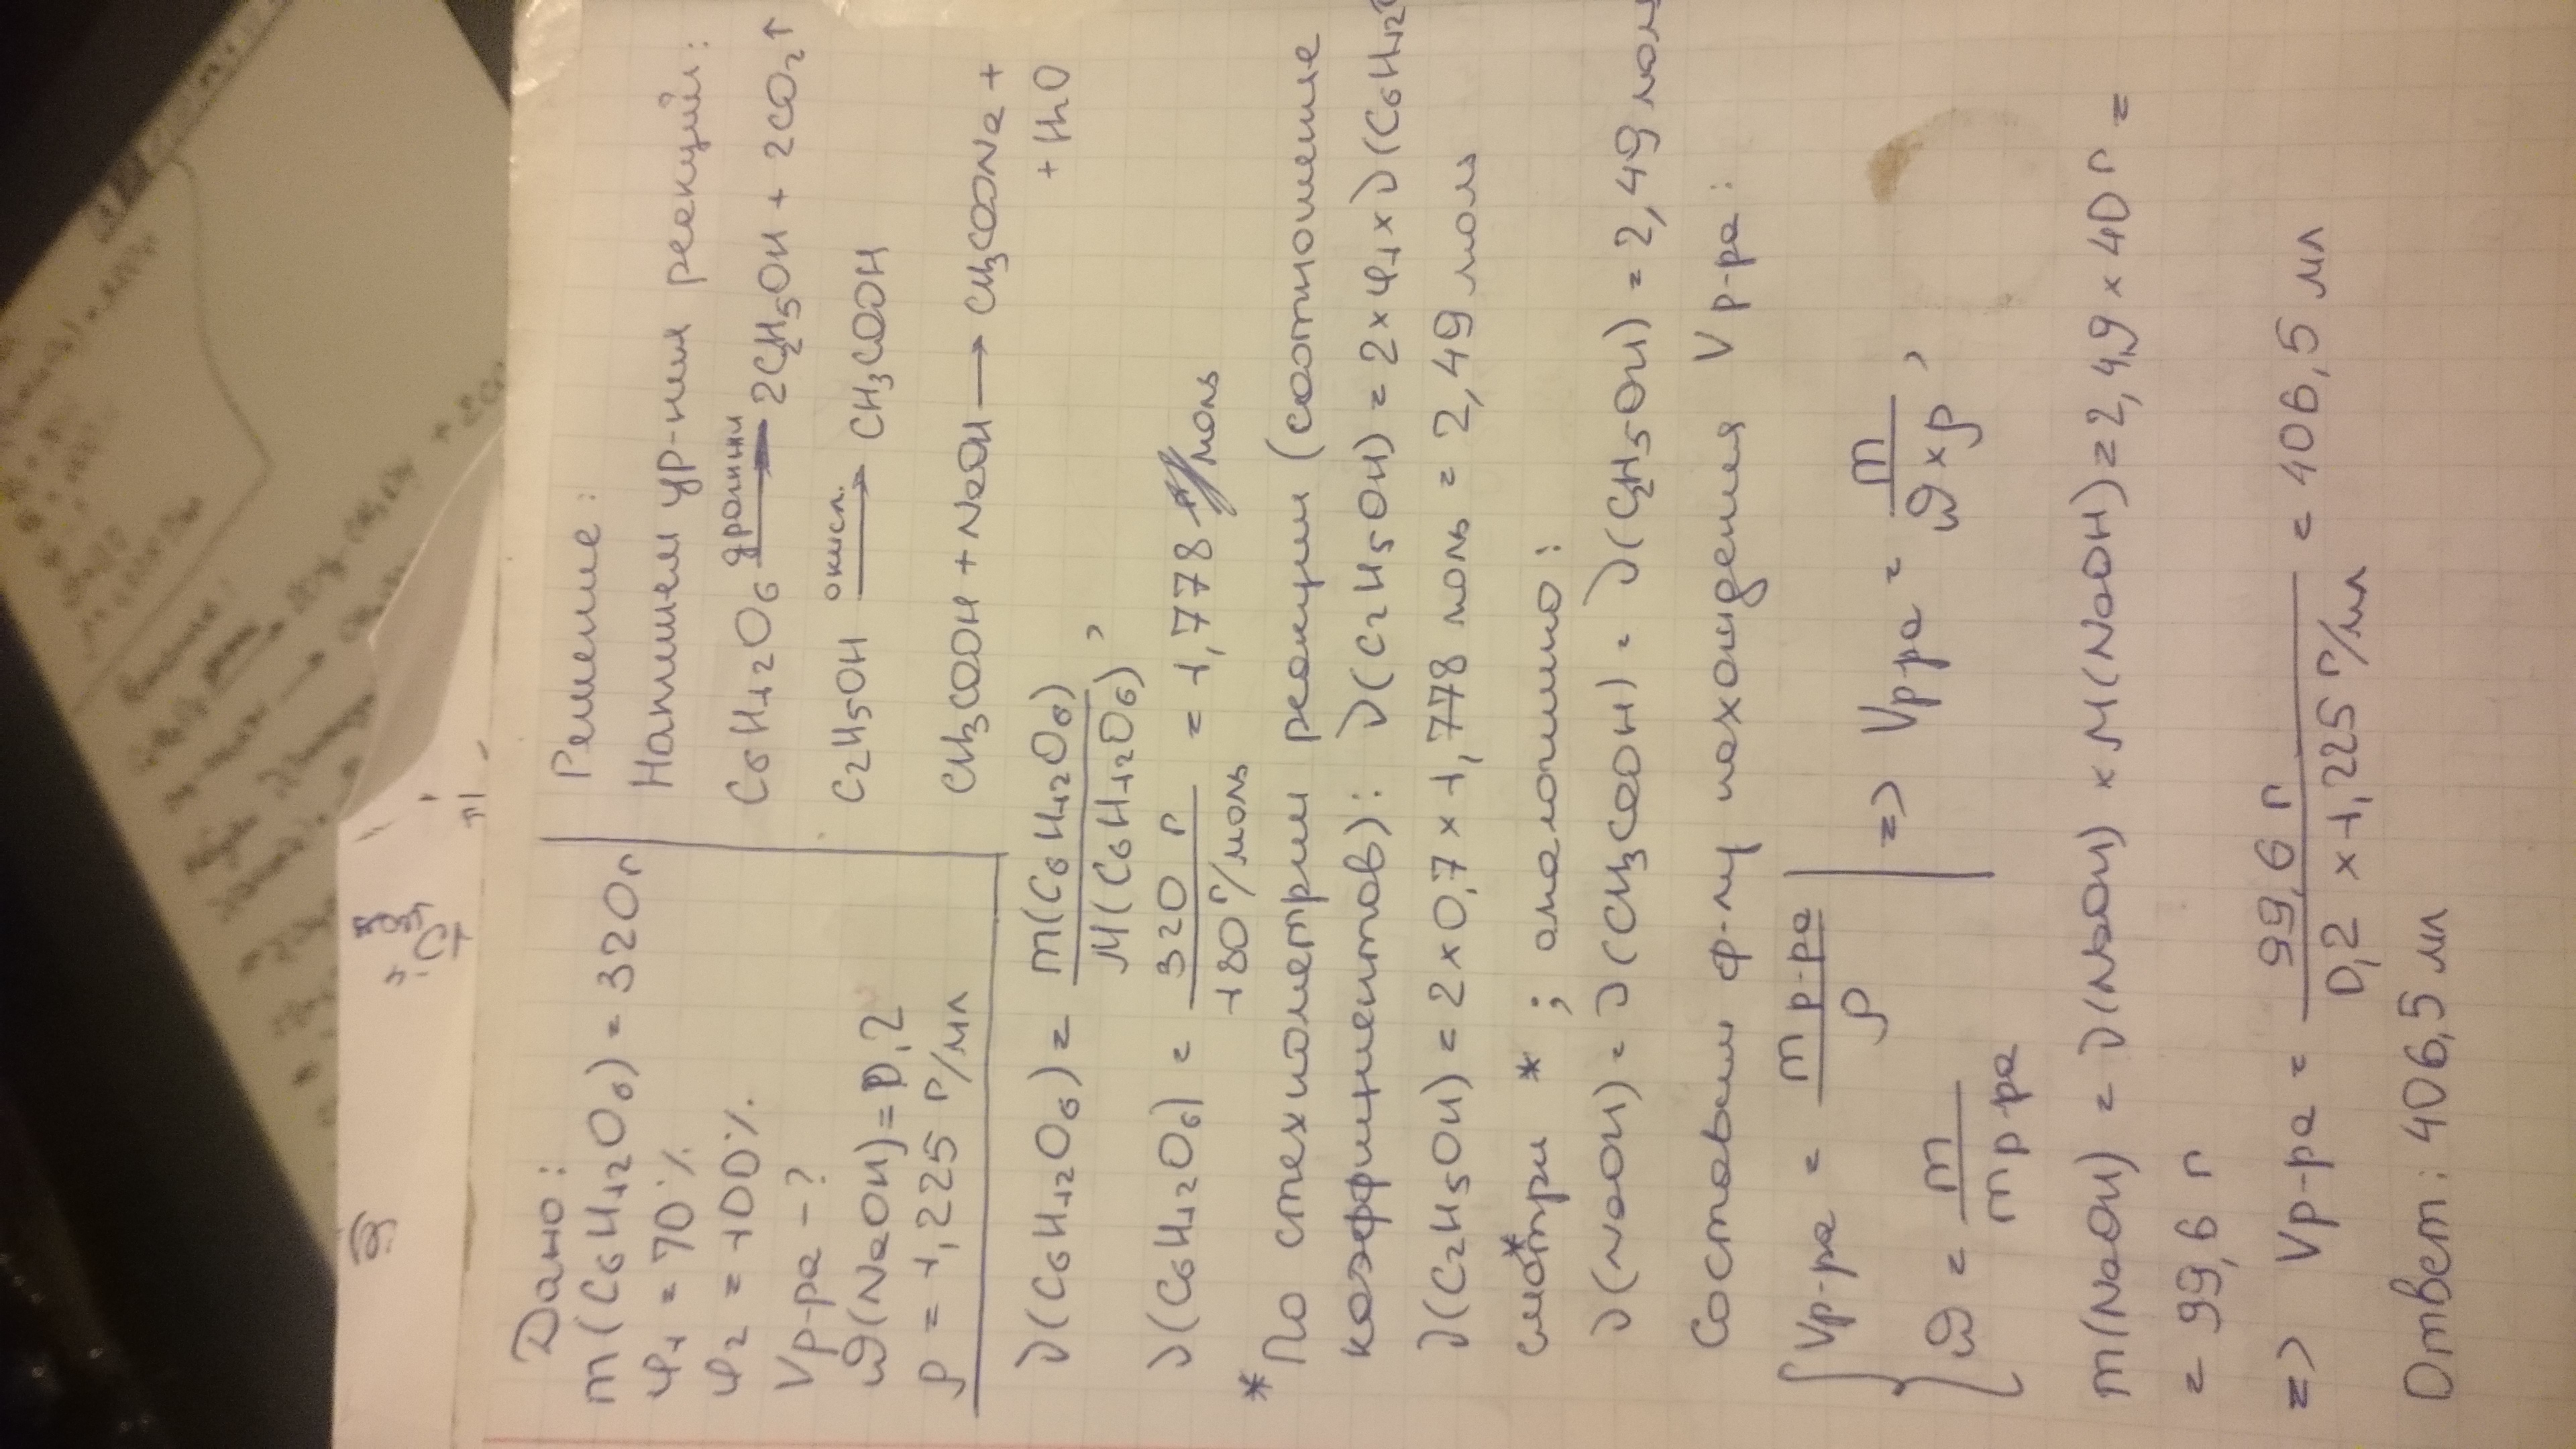 Дано:
m(C6H12O6) = 320г
φ1 = 70%
φ2 = 100%
Vр-ра - ?
ω(NaOH) = 0,2
ρ = 1,225 г/мл
Решение:
Напишем ур-ния реакций:
C6H12O6 дрожжи → 2C2H5OH + 2CO2↑
C2H5OH окисл. → CH3COOH
CH3COOH + NaOH → CH3COONa +
+ H2O
ν(C6H12O6) = m(C6H12O6) / M(C6H12O6) ,
ν(C6H12O6) = 320 г / 180 г/моль = 1,778 моль
* По стехиометрии реакции (соотношение
коэффициентов): ν(C2H5OH) = 2 × φ1 × ν(C6H12O
ν(C2H5OH) = 2 × 0,7 × 1,778 моль = 2,49 моль
смотри * ; аналогично:
ν(NaOH) = ν(CH3COOH) = ν(C2H5OH) = 2,49 моль
Составим ф-лу нахождения Vр-ра:
{ Vр-ра = m р-ра / ρ
ω = m / m р ра
=> Vр ра = m / ω × ρ ,
m(NaOH) = ν(NaOH) × M(NaOH) = 2,49 × 40 г =
= 99,6 г
=> Vр-ра = 99,6 г / 0,2 × 1,225 г/мл = 406,5 мл
Ответ: 406,5 мл